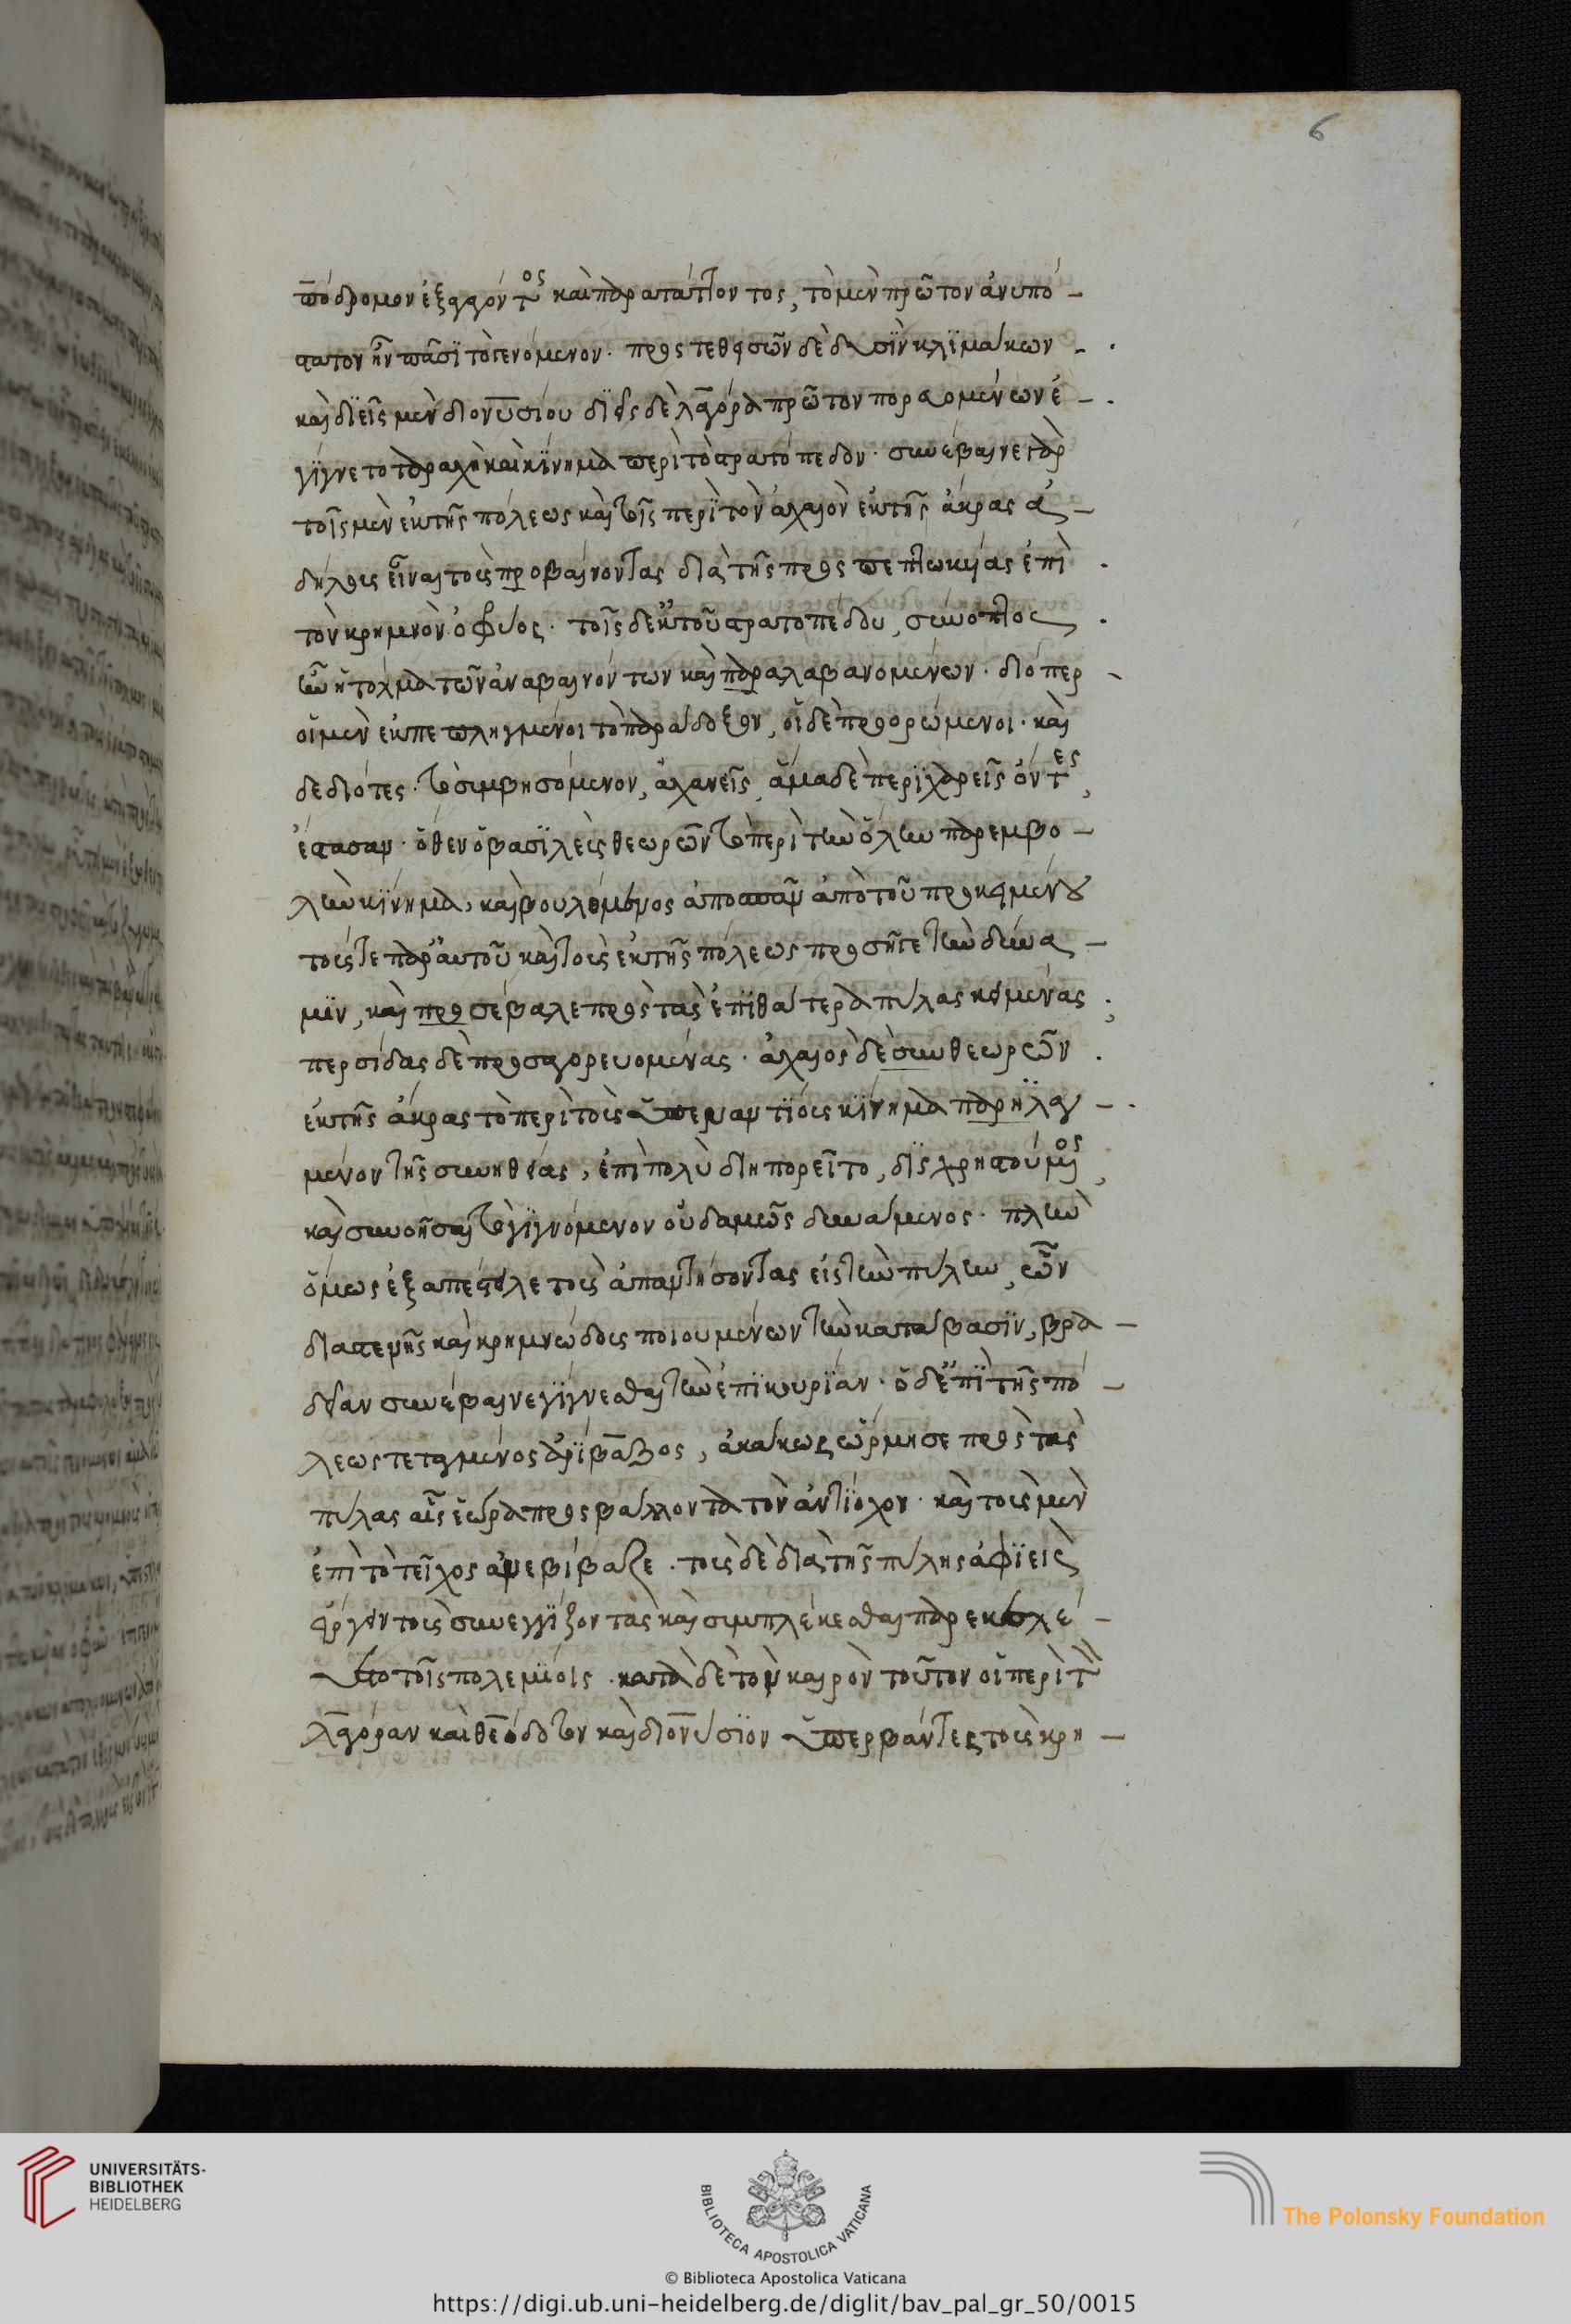 ππόδρομον ἐξαγαγόντος καὶ παρατάττοντος, τὸ μὲν πρῶτον ἀνυπό-
στατον ἦν πᾶσϊ τὸ γενόμενον. προστεθεισῶν δὲ δυσῒν κλϊμάκων
καὶ δϊεῖς μὲν διονυσίου δϊεῖς δὲ λαγόρα πρῶτον πορευομένων ἐ-
γΐγνετο ταραχὴ καὶ κΐνημα περὶ τὸ στρατόπεδον. συνέβαινε γὰρ
τοῖς μὲν ἐκ τῆς πόλεως καὶ τοῖς περῒ τὸν ἀχαιὸν ἐκ τῆς ἄκρας ἀ-
δήλους εἶναι τοὺς προβαίνοντας διὰ τῆς προσπεπτωκυίας ἐπὶ
τὸν κρημνὸν ὀφρύος. τοῖς δ' ἐκ τοῦ στρατοπέδου, σύνοπτος
ἦν ἡ τόλμα τῶν ἀναβαινόντων καὶ παραλαβανομένων. διόπερ
οἱ μὲν ἐκπεπληγμένοι τὸ παράδοξον, οἱ δὲ προορώμενοι. καὶ
δεδιότες. τὸ συμβησόμενον, ἀχανεῖς, ἅμα δὲ περϊχαρεῖς ὄντες,
ἔστασαν. ὅθεν ὁ βασϊλεὺς θεωρῶν τὸ περὶ τὴν ὅλην παρεμβο-
λὴν κΐνημα, καὶ βουλόμενος ἀποσπᾶν ἀπὸ τοῦ προκειμένου
τούς τε παρ' αὐτοῦ καὶ τοὺς ἐκ τῆς πόλεως προσῆγε τὴν δύνα-
μϊν, καὶ προσέβαλε πρὸς τὰς ἐπῒ θάτερα πύλας κειμένας,
περσίδας δὲ προσαγορευομένας. ἀχαιὸς δὲ συνθεωρῶν
ἐκ τῆς ἄκρας τὸ περὶ τοὺς ὑπεναντΐους κΐνημα παρηλαγ-
μένον τῆς συνηθείας, ἐπὶ πολὺ διηπορεῖτο, δϊσχρηστούμενος,
καὶ συνοῆσαι τὸ γϊγνόμενον οὐδαμῶς δυνάμενος. πλὴν
ὅμως ἐξαπέστελε τοὺς ἀπαντήσοντας εἰς τὴν πύλην, ὧν
διὰ στενῆς καὶ κρημνώδους ποιουμένων τὴν κατάβασϊν, βρα-
δεῖαν συνέβαινε γΐγνεσθαι τὴν ἐπϊκουρΐαν. ὁ δ' ἐπῒ τῆς πό-
λεως τεταγμένος ἀρϊβαζος, ἀκάκως ὥρμησε πρὸς τὰς
πύλας αἷς ἑώρα προσβάλλοντα τὸν ἀντΐοχον. καὶ τοὺς μὲν
ἐπὶ τὸ τεῖχος ἀνεβίβαζε. τοὺς δὲ διὰ τῆς πύλης ἀφϊεὶς
εἴργειν τοὺς συνεγγΐζοντας καὶ συμπλέκεσθαι παρεκελεύ-
ετο τοῖς πολεμΐοις. κατὰ δὲ τὸν καιρὸν τοῦτον οἱ περὶ τὸν
λαγόραν καὶ θεόδοτον καὶ διονύσϊον ὑπερβάντες τοὺς κρη-
6
UNIVERSITÄTS-
BIBLIOTHEK
HEIDELBERG
BIBLIOTECA APOSTOLICA VATICANA
The Polonsky Foundation
© Biblioteca Apostolica Vaticana
https://digi.ub.uni-heidelberg.de/diglit/bav_pal_gr_50/0015